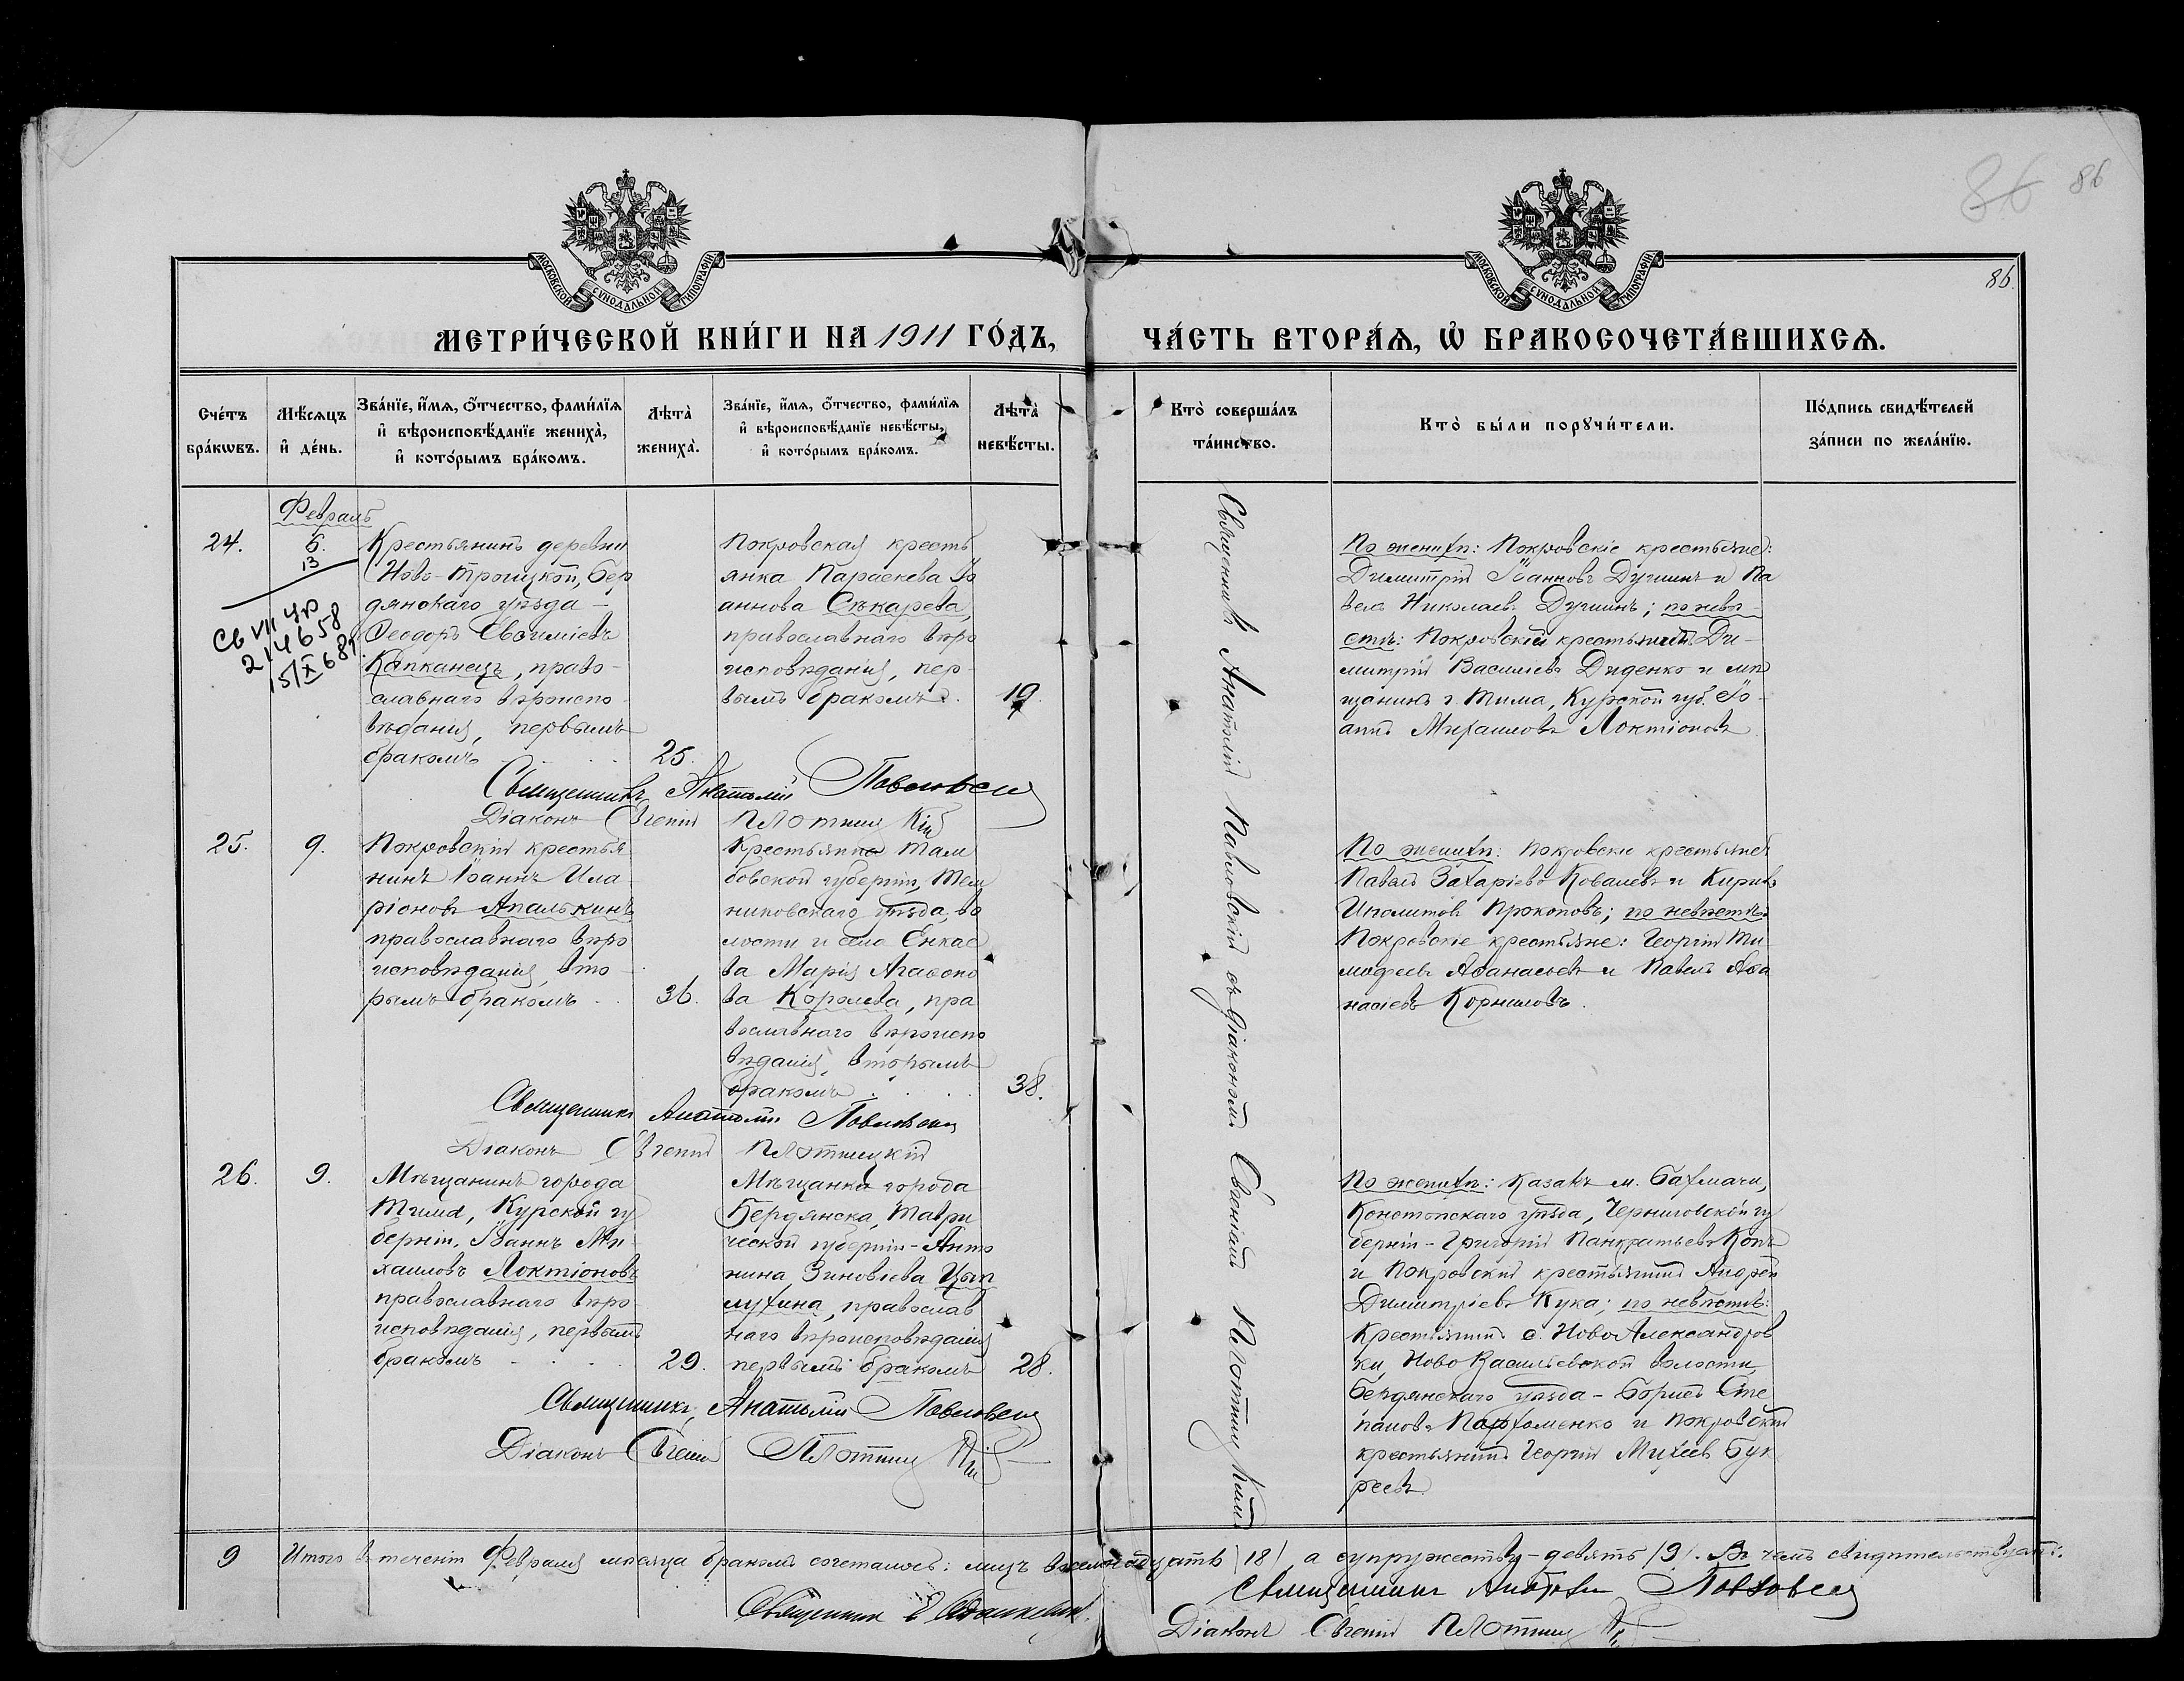 86 86
86.
МОСКОВСКОЙ СѴНОДАЛЬНОЙ ТИПОГРАФІИ
МОСКОВСКОЙ СѴНОДАЛЬНОЙ ТИПОГРАФІИ
МЕТРИ́ЧЕСКОЙ КНИ́ГИ НА 1911 ГО́ДЪ,
ЧА́СТЬ ВТОРА́Ѧ, Ѡ҆ БРАКОСОЧЕТА́ВШИХСѦ.
Счéтъ бра́кѡвъ.
Мѣ́сяцъ и҆ де́нь.
Зва́нїе, и҆́мѧ, ѻ҆́тчество, фами́лїѧ и҆ вѣроисповѣ́данїе жениха̀, и҆ кото́рымъ бра́комъ.
Лѣта̀ жениха̀.
Зва́нїе, и҆́мѧ, ѻ҆́тчество, фами́лїѧ и҆ вѣроисповѣ́данїе невѣ́сты, и҆ кото́рымъ бра́комъ.
Лѣта̀ невѣ́сты.
Кто̀ соверша́лъ та́инство.
Кто̀ бы́ли порꙋчи́тели.
По́дпись свидѣ́телей за́писи по жела́нїю.
Февраль
24.
6.
13
Св VII
214658
15/X 689
Крестьянинъ деревни
Ново-Троицкой, Бер
дянскаго уѣзда –
Ѳеодоръ Евѳиміевъ
Капканецъ, право-
славнаго вѣроиспо
вѣданія, первымъ
бракомъ
25.
Покровская кресть
янка Параскева Іо
аннова Секарева,
православнаго вѣро
исповѣданія, пер-
вымъ бракомъ.
19.
Священникъ Анатолій Павловскій
Діаконъ Евгеній Плотницкій
По женихѣ: Покровскіе крестьяне:
Димитрій Іоанновъ Душинъ и Па
велъ Николаевъ Душинъ; по невѣ-
стѣ: Покровскій крестьянинъ Ди-
митрій Васильевъ Диденко и мѣ
щанинъ г. Тима, Курской губ. Іо-
аннъ Михаиловъ Локтіоновъ
25.
9.
Покровскій крестья
нинъ Іоаннъ Ила
ріоновъ Апалькинъ
православнаго вѣро
исповѣданія, вто
рымъ бракомъ
36.
Крестьянка Там
бовской губерніи, Тем
никовскаго уѣзда, во
лости и села Енкае
ва Марія Агаѳоно
ва Королева, пра
вославнаго вѣроиспо
вѣданія, вторымъ
бракомъ
38.
Священникъ Анатолій Павловскій
Діаконъ Евгеній Плотницкій
По женихѣ: Покровскіе крестьяне
Павелъ Захаріевъ Ковалевъ и Кирикъ
Ипполитовъ Прокоповъ; по невѣстѣ:
Покровскіе крестьяне: Георгій Ти
моѳеевъ Аѳанасьевъ и Павелъ Аѳа
насіевъ Корниловъ.
26.
9.
Мѣщанинъ города
Тима, Курской гу
берніи, Іоаннъ Ми-
хаиловъ Локтіоновъ
православнаго вѣро
исповѣданія, первымъ
бракомъ
29.
Мѣщанка города
Бердянска, Таври
ческой губерніи – Анто
нина Зиновіева Цып
лухина, православ
наго вѣроисповѣданія
первымъ бракомъ
28.
Священникъ Анатолій Павловскій
Діаконъ Евгеній Плотницкій
По женихѣ: Казакъ м. Бахмачи,
Конотопскаго уѣзда, Черниговской гу
берніи – Григорій Панкратьевъ Копъ
и Покровскій крестьянинъ Андрей
Димитріевъ Кука; по невѣстѣ:
Крестьянинъ с. НовоАлександров
ки, НовоВасильевской волости,
Бердянскаго уѣзда – Борисъ Сте
пановъ Пархоменко и Покровскій
крестьянинъ Георгій Михѣевъ Бук
реевъ.
Священникъ Анатолій Павловскій съ діакономъ Евгеніемъ Плотницкимъ
9
Итого въ теченіи Февраля мѣсяца бракомъ сочеталось: лицъ восемнадцать (18), а супружествъ – девять (9). Въ чемъ свидѣтельствуютъ:
Священникъ Анатолій Павловскій
Священникъ
Діаконъ Евгеній Плотницкій